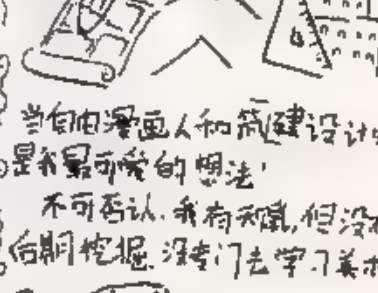 当自由漫画人和筑建设计
是我最可爱的想法'
不可否认,我有天赋,但没
后期挖掘.没专门去学习美术